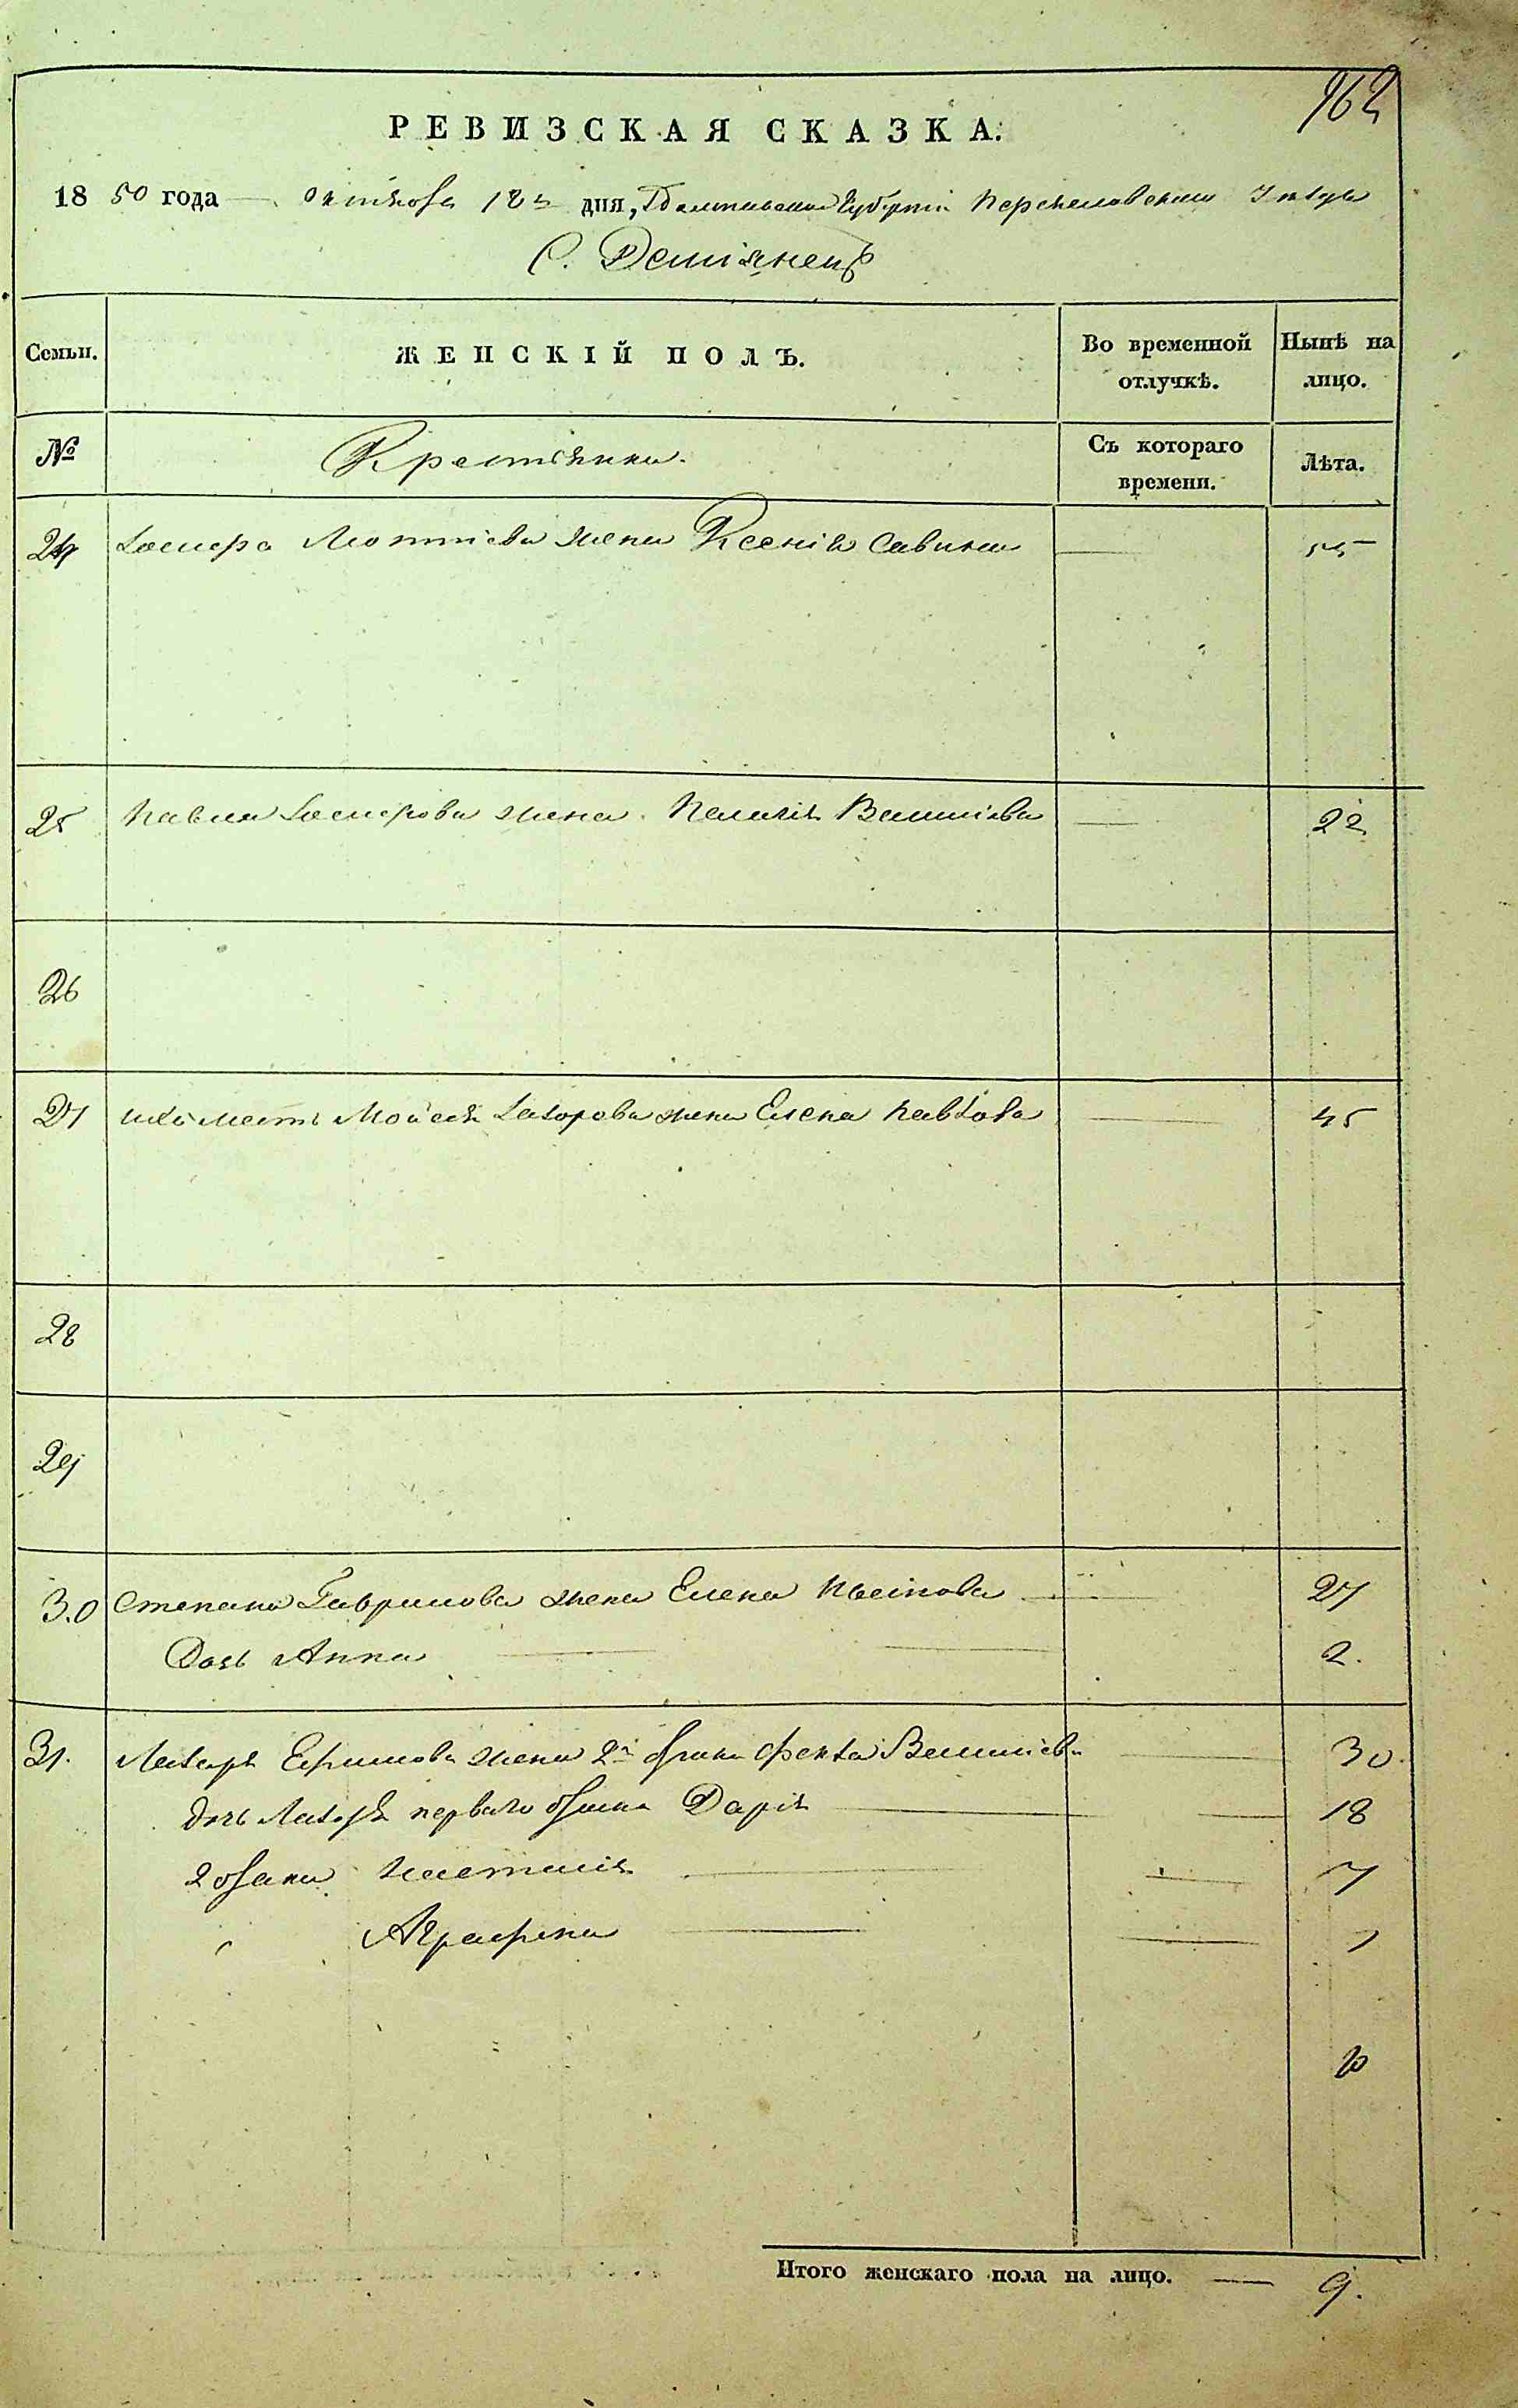 162
РЕВИЗСКАЯ СКАЗКА.
1850 года — октября 18 дня, Полтавской Губерніи Переяславскаго
С. Демянецъ
Семьи. ЖЕНСКІЙ ПОЛЪ. Во временной отлучкѣ. Нынѣ на лицо.
№ Крестьянки. Съ котораго времени. Лѣта.
24 жена Ксенія Савина — 55
25 Павла жена Пелагія — 22
26
27 Мойсея жена Елена — 45
28
29
30 Степана Гаврилова жена Елена — 27
Дочь Анна — 2.
31. Лазаря Ефимова жена 2й брака Фекла — 30.
дочь Лазаря перваго брака Дарія — 18
2 брака Настасія — 7
" Аграфена — 1
Итого женскаго пола на лицо. — 9.